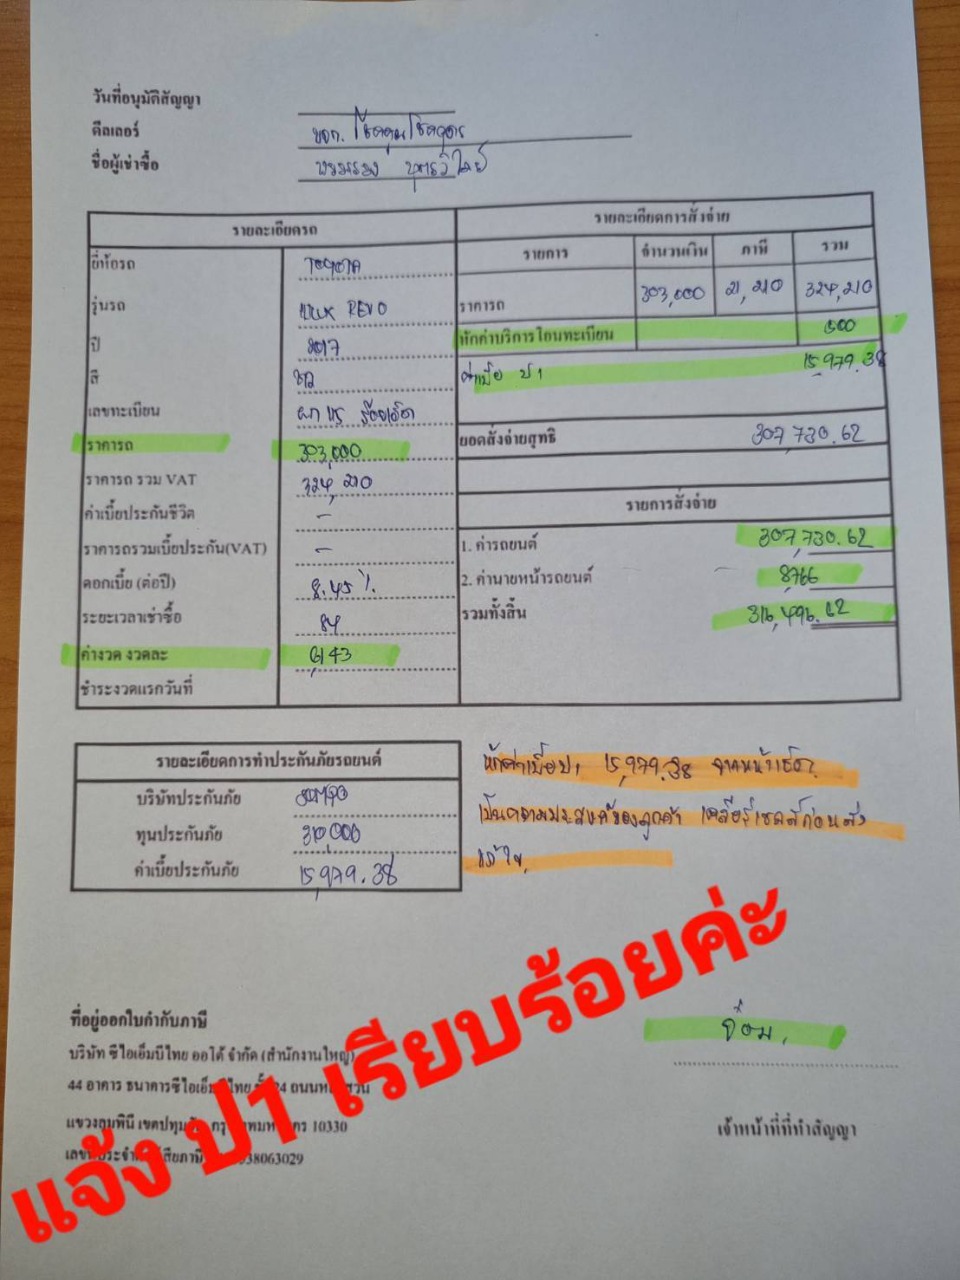 วันที่อนุมัติสัญญา
ดีลเลอร์ หจก. โชคคูณโชคถาวร
ชื่อผู้เช่าซื้อ
รายละเอียดรถ
ยี่ห้อรถ TOYOTA
รุ่นรถ HILUX REVO
ปี 2017
สี ขาว
เลขทะเบียน ผก 115 ร้อยเอ็ด
ราคารถ 303,000
ราคารถ รวม VAT 324,210
ค่าเบี้ยประกันชีวิต -
ราคารถรวมเบี้ยประกัน(VAT) -
ดอกเบี้ย (ต่อปี) 8.45 %
ระยะเวลาเช่าซื้อ 84
ค่างวด งวดละ 6,143
ชำระงวดแรกวันที่
รายละเอียดการสั่งจ่าย
รายการ จำนวนเงิน ภาษี รวม
ราคารถ 303,000 21,210 324,210
หักค่าบริการโอนทะเบียน 500
ค่าเบี้ย ป1 15,979.38
ยอดสั่งจ่ายสุทธิ 307,730.62
รายการสั่งจ่าย
1. ค่ารถยนต์ 307,730.62
2. ค่านายหน้ารถยนต์ 8,766
รวมทั้งสิ้น 316,496.62
รายละเอียดการทำประกันภัยรถยนต์
บริษัทประกันภัย
ทุนประกันภัย 310,000
ค่าเบี้ยประกันภัย 15,979.38
หักค่าเบี้ย ป1 15,979.38 จากหน้าเช็ค
เป็นความประสงค์ของลูกค้า เคลียร์เซลล์ก่อนส่ง
แล้ว
ที่อยู่ออกใบกำกับภาษี
บริษัท ซีไอเอ็มบีไทย ออโต้ จำกัด (สำนักงานใหญ่)
44 อาคาร ธนาคารซีไอเอ็มบีไทย ชั้น 24 ถนนหลังสวน
แขวงลุมพินี เขตปทุมวัน กรุงเทพมหานคร 10330
เลขประจำตัวผู้เสียภาษี 38063029
จ๋อม
เจ้าหน้าที่ที่ทำสัญญา
แจ้ง ป1 เรียบร้อยค่ะ